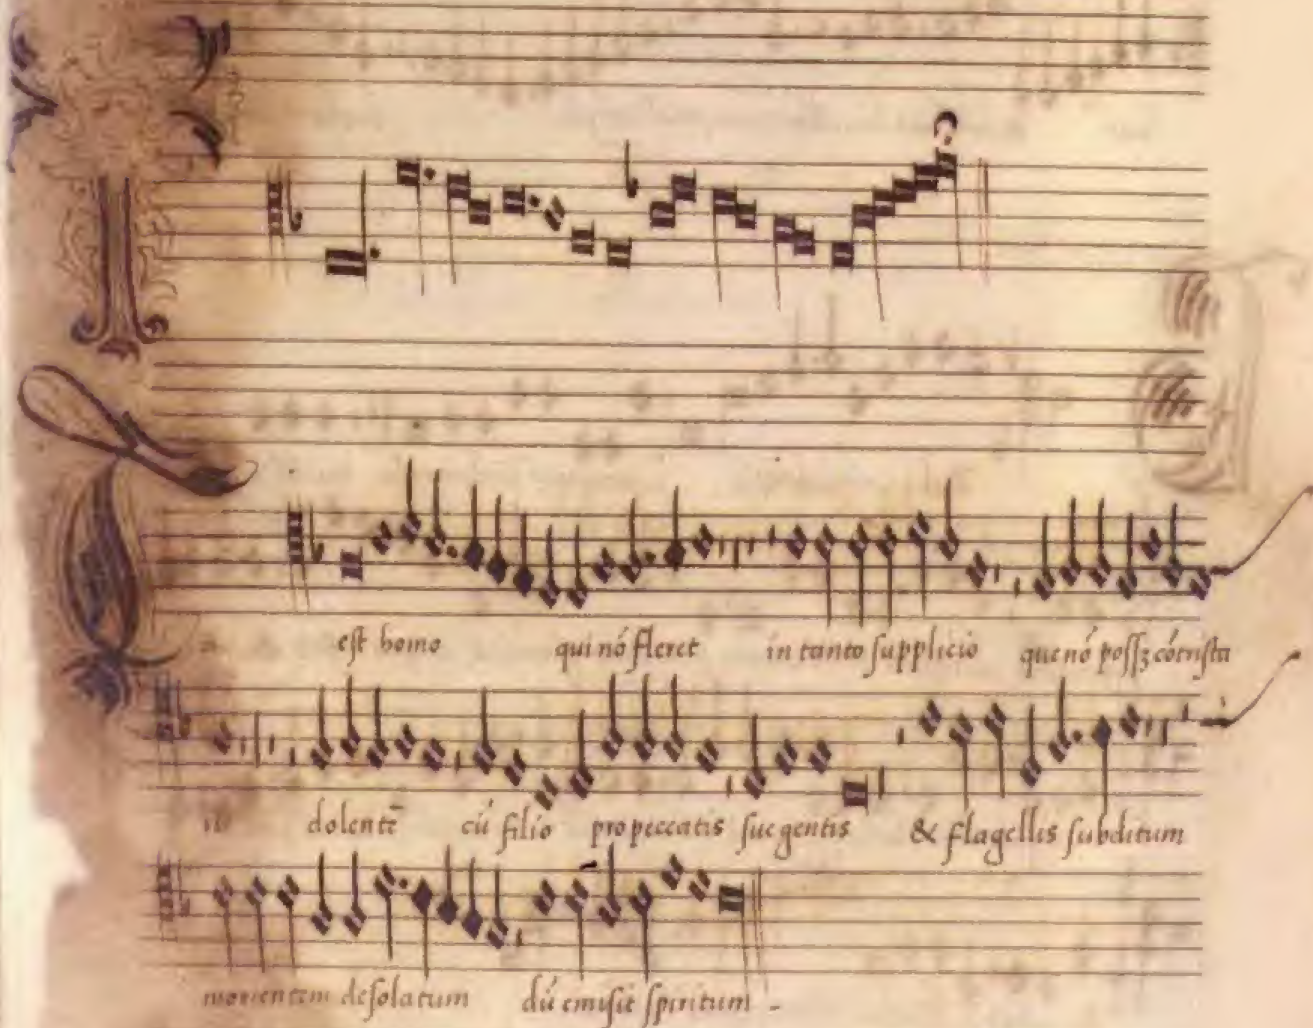 est homo qui nó fleret in tanto supplicio que nó possꝫ cótrista
dolentē cú filio pro peccatis sue gentis & flagellis subditum
morientem desolatum dú emisit spiritum